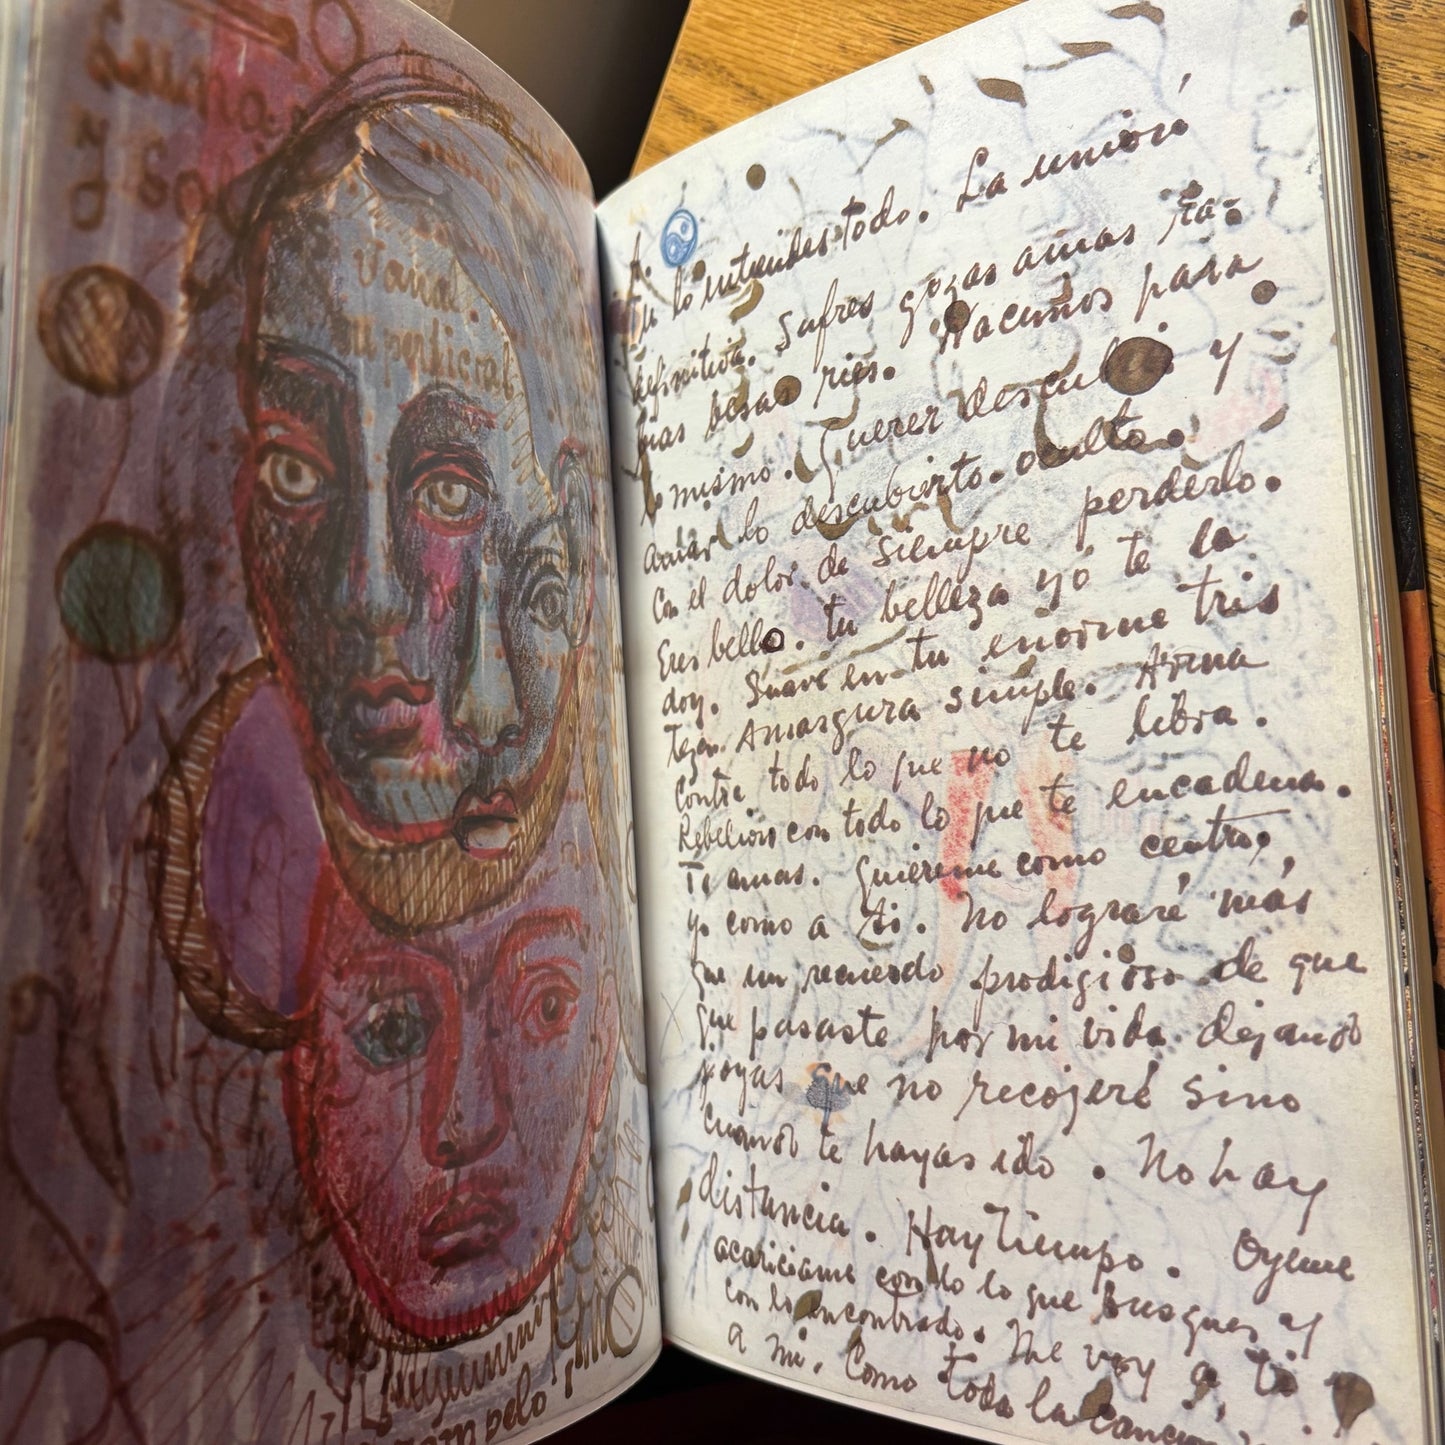 vanal.
perlicral
pelo
A.
Tu lo entiendes todo. La unión
definitiva. Sufres gozas amas ra-
bias besas ries. Nacemos para
lo mismo. Querer descubrir y
amar lo descubierto. oculto.
Con el dolor de siempre perderlo.
Eres bello. tu belleza yo te la
doy. Suave en tu enorme tris
teza. Amargura simple. Arma
contra todo lo que no te libra.
Rebelion con todo lo que te encadena.
Te amas. Quiereme como centro,
yo como a ti. No lograré más
que un recuerdo prodigioso de que
que pasaste por mi vida dejando
joyas que no recojeré sino
cuando te hayas ido. No hay
distancia. Hay tiempo. Oyeme
acariciame con lo que busques y
con lo encontrado. Me voy a ti y
a mi. Como toda la cancion